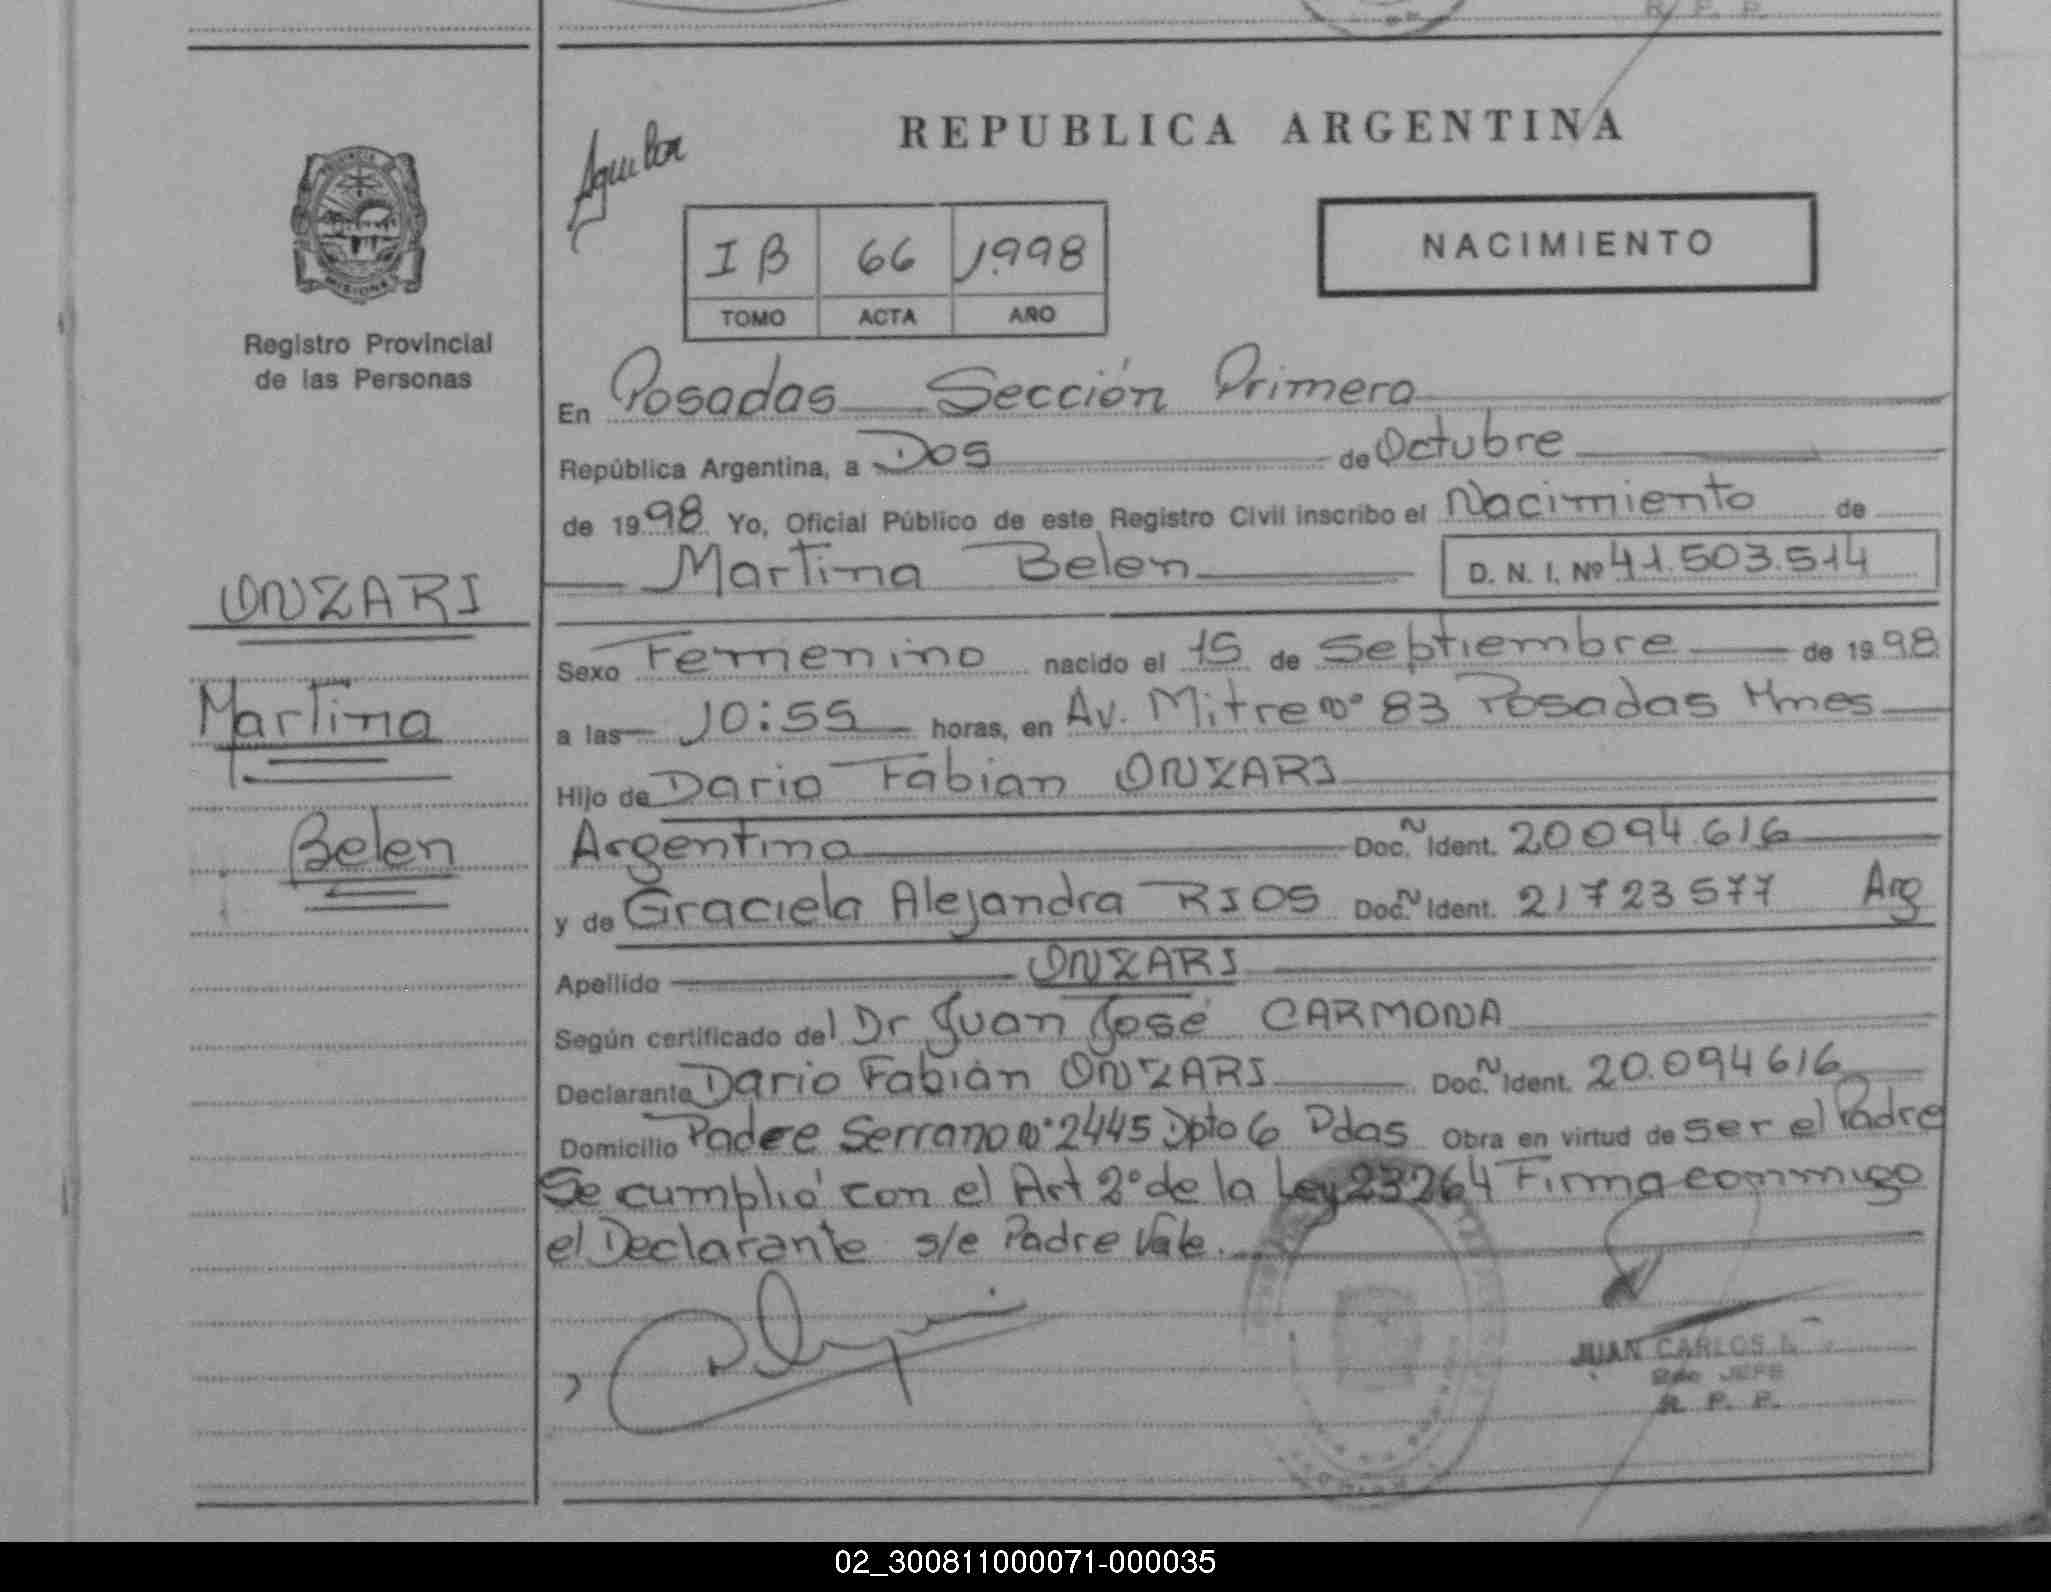 R. P. P.
REPUBLICA ARGENTINA
Aguilar
NACIMIENTO
I B 66 1.998
TOMO ACTA AÑO
Registro Provincial
de las Personas
En Posadas Sección Primera
República Argentina, a Dos de Octubre
de 1998 Yo, Oficial Público de este Registro Civil inscribo el Nacimiento de
Martina Belen D. N. I. Nº 41.503.514
ONZARI
Martina
Belen
Sexo Femenino nacido el 15 de Septiembre de 1998
a las 10:55 horas, en Av. Mitre Nº 83 Posadas Mnes
Hijo de Dario Fabian ONZARI
Argentino Doc. Ident. 20094.616
y de Graciela Alejandra RIOS Doc. Ident. 21723577 Arg
Apellido ONZARI
Según certificado del Dr Juan José CARMONA
Declarante Dario Fabián ONZARI Doc. Ident. 20.094616
Domicilio Padre Serrano Nº 2445 Dpto 6 Pdas Obra en virtud de ser el Padre
Se cumplió con el Art 2º de la Ley 23264 Firma conmigo
el Declarante s/e Padre Vale.
MISIONES
JUAN CARLOS
JEFE
R. P. P.
02_300811000071-000035